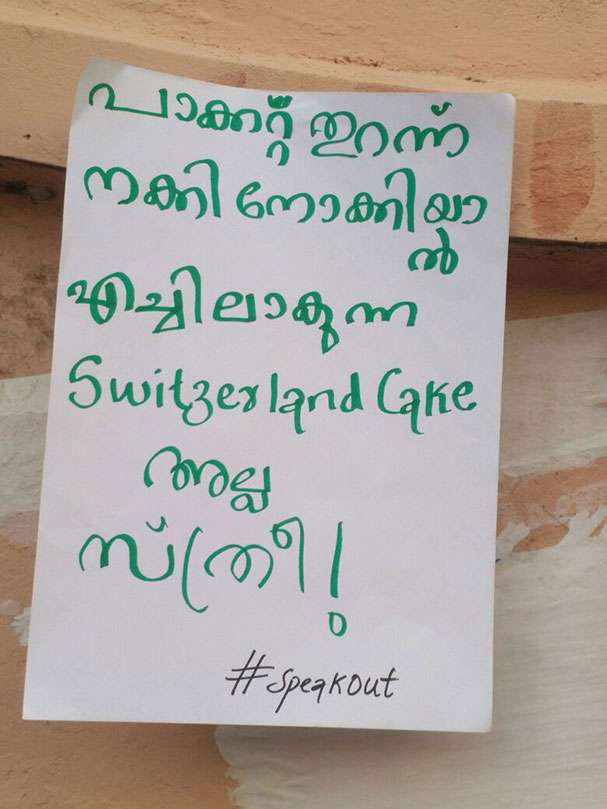 പാക്കറ്റ് തുറന്ന്
നക്കി നോക്കിയാ
ൽ
എച്ചിലാകുന്ന
Switzerland Cake
അല്ല
സ്ത്രീ!
#speakout